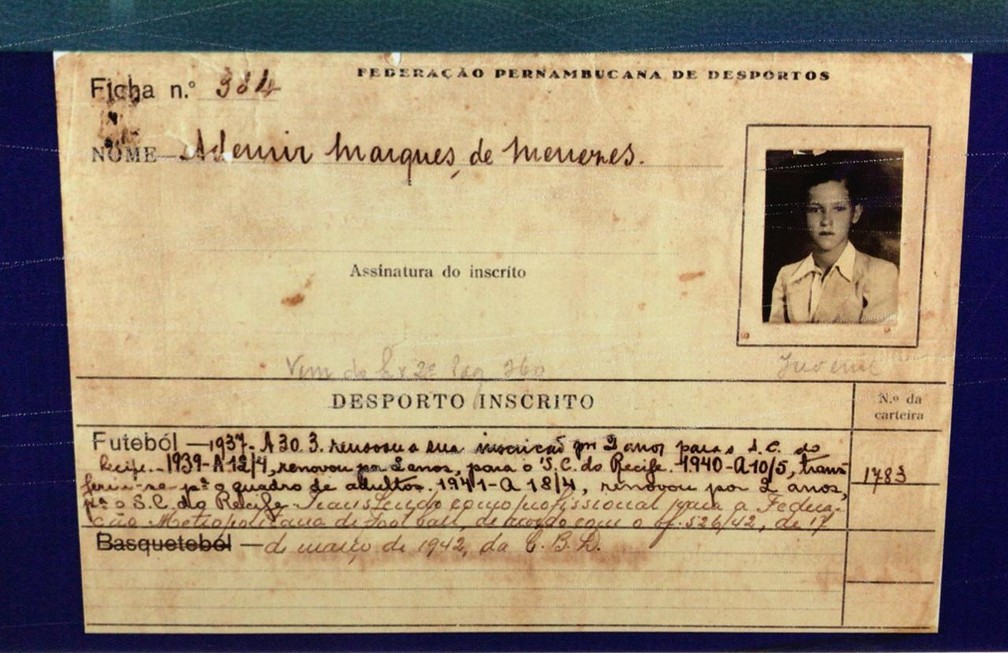 FEDERAÇÃO PERNAMBUCANA DE DESPORTOS
Ficha n.º 384
NOME Ademir Marques de Menezes.
Assinatura do inscrito
Vem do L. 2º Pag 360
Juvenil
DESPORTO INSCRITO
N.º da
carteira
Futeból — 1937. A 30.3. renovou a sua inscrição por 2 anos para o S.C. do
Recife. - 1939 - A 12/4, renovou por 2 anos, para o S.C. do Recife. 1940 - A 10/5, trans
feriu-se pª o quadro de adultos. 1941 - A 18/4, renovou por 2 anos,
1783
pª o S.C. do Recife Transferido como profissional para a Federa-
ção Metropolitana de Football, de acordo com o of. 526/42, de 17
Basqueteból — de março de 1942, da C.B.D.